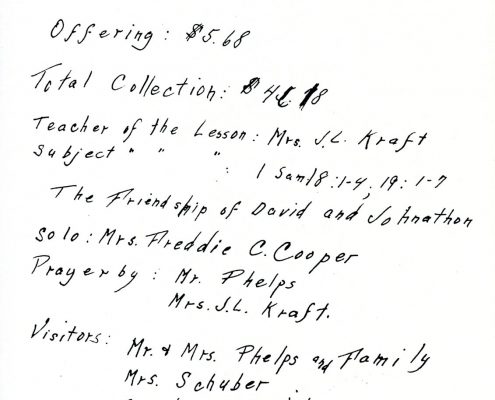 Offering: $5.68
Total Collection: $
Teacher of the Lesson: Mrs. J.L. Kraft
Subject " " " :
1 Sam 18:1-4; 19:1-7
The Friendship of David and Johnathon
Solo: Mrs. Freddie C. Cooper
Prayer by: Mr. Phelps
Mrs. J.L. Kraft.
Visitors:
Mr. & Mrs. Phelps and Family
Mrs. Schuber